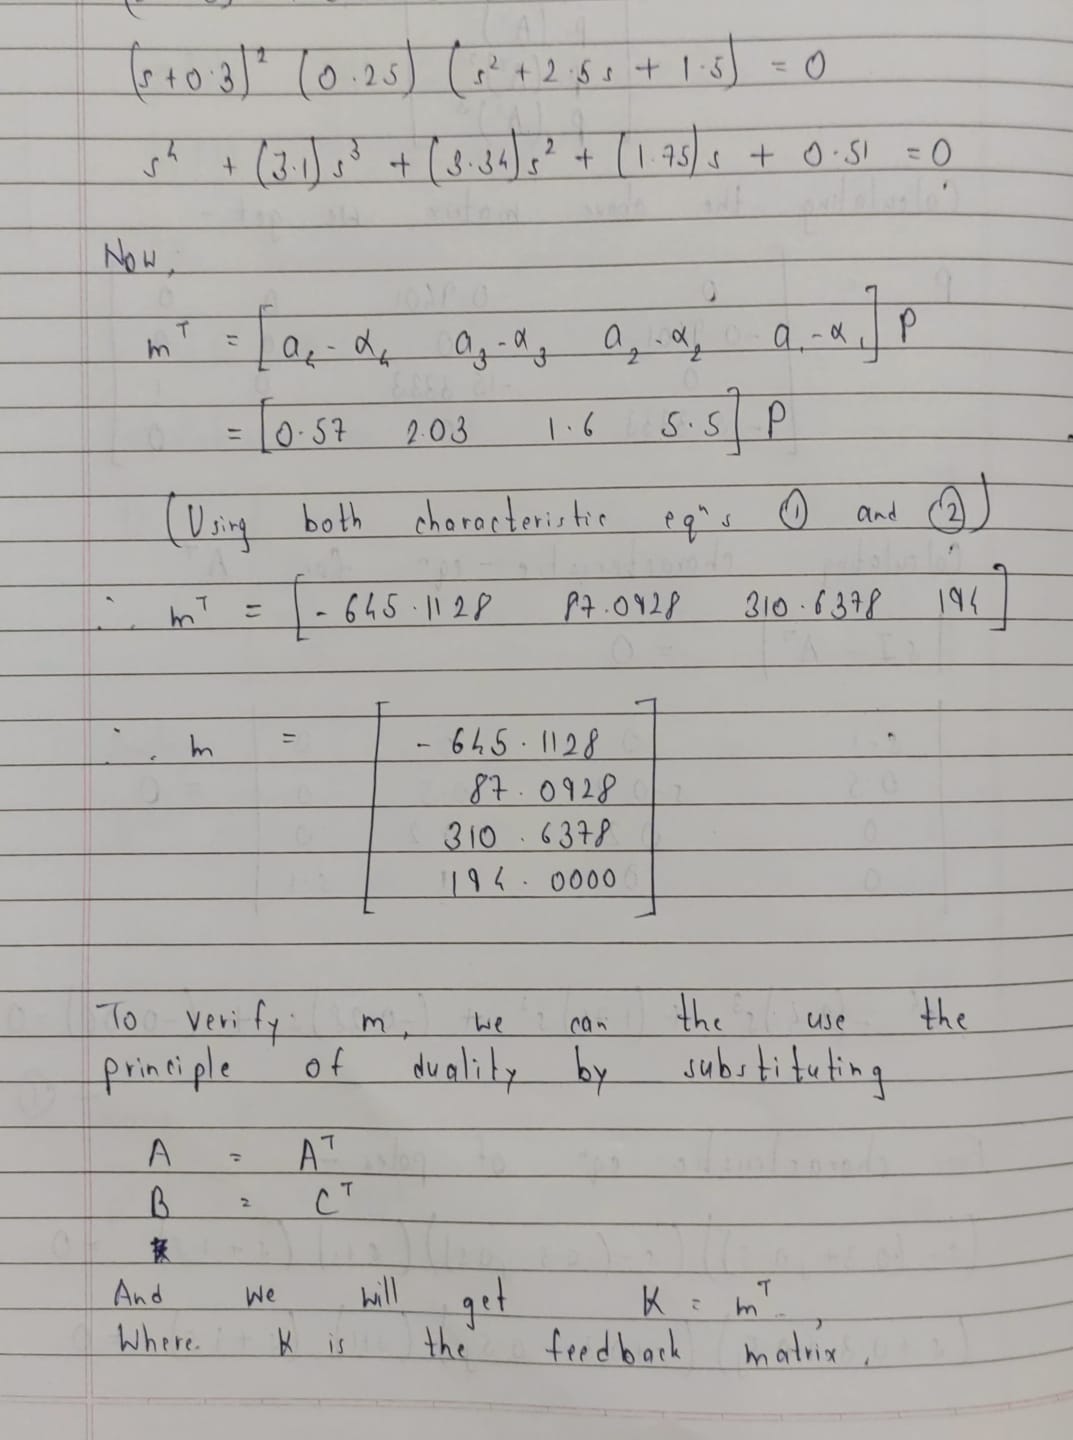 (s+0.3)² (0.25) (s² + 2.5s + 1.5) = 0
s⁴ + (3.1)s³ + (3.34)s² + (1.75)s + 0.51 = 0
Now,
mᵀ = [a₄ - α₄ a₃ - α₃ a₂ - α₂ a₁ - α₁] P
= [0.57 2.03 1.6 5.5] P
(Using both characteristic eqⁿs ① and ②)
∴ mᵀ = [- 645.1128 87.0928 310.6378 194]
∴ m = [- 645.1128
87.0928
310.6378
194.0000]
To verify m, we can the use the
principle of duality by substituting
A = Aᵀ
B = Cᵀ
And we will get K = mᵀ,
Where K is the feedback matrix.